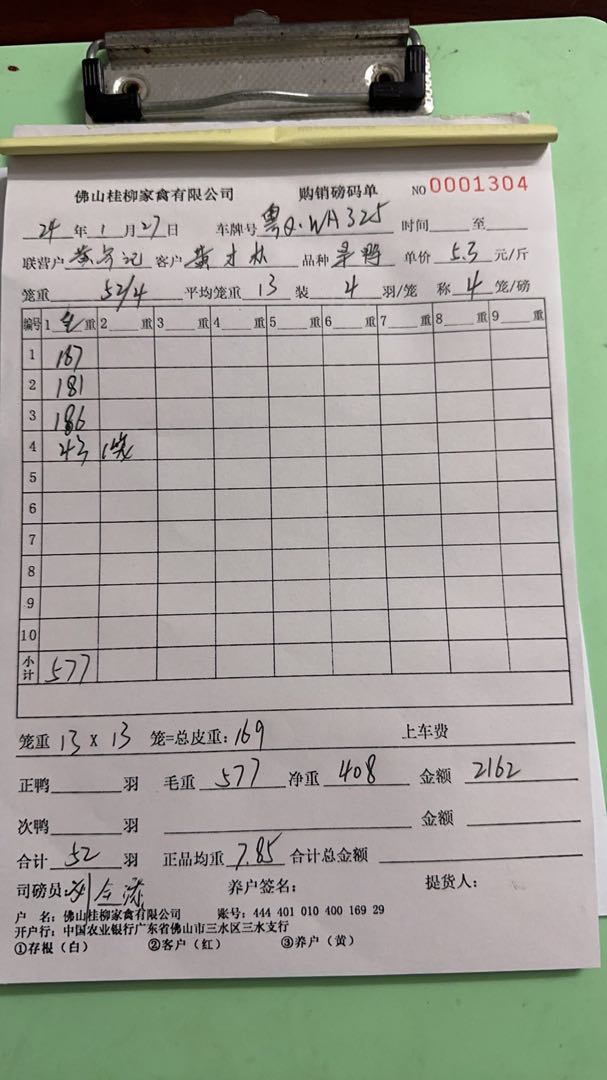 佛山桂柳家禽有限公司 购销磅码单 NO 0001304
24 年 1 月 27 日 车牌号 粤Q·WA325 时间 至
联营户 客户 黄才林 品种 单价 5.3 元/斤
笼重 52/4 平均笼重 13 装 4 羽/笼 称 4 笼/磅
编号 1 毛 重 2 重 3 重 4 重 5 重 6 重 7 重 8 重 9 重
1 187
2 181
3 186
4 43
5
6
7
8
9
10
小计 577
笼重 13 x 13 笼=总皮重: 169 上车费
正鸭 羽 毛重 577 净重 408 金额 2162
次鸭 羽 金额
合计 52 羽 正品均重 7.85 合计总金额
司磅员: 养户签名: 提货人:
户 名: 佛山桂柳家禽有限公司 账号: 444 401 010 400 169 29
开户行: 中国农业银行广东省佛山市三水区三水支行
①存根(白) ②客户(红) ③养户(黄)